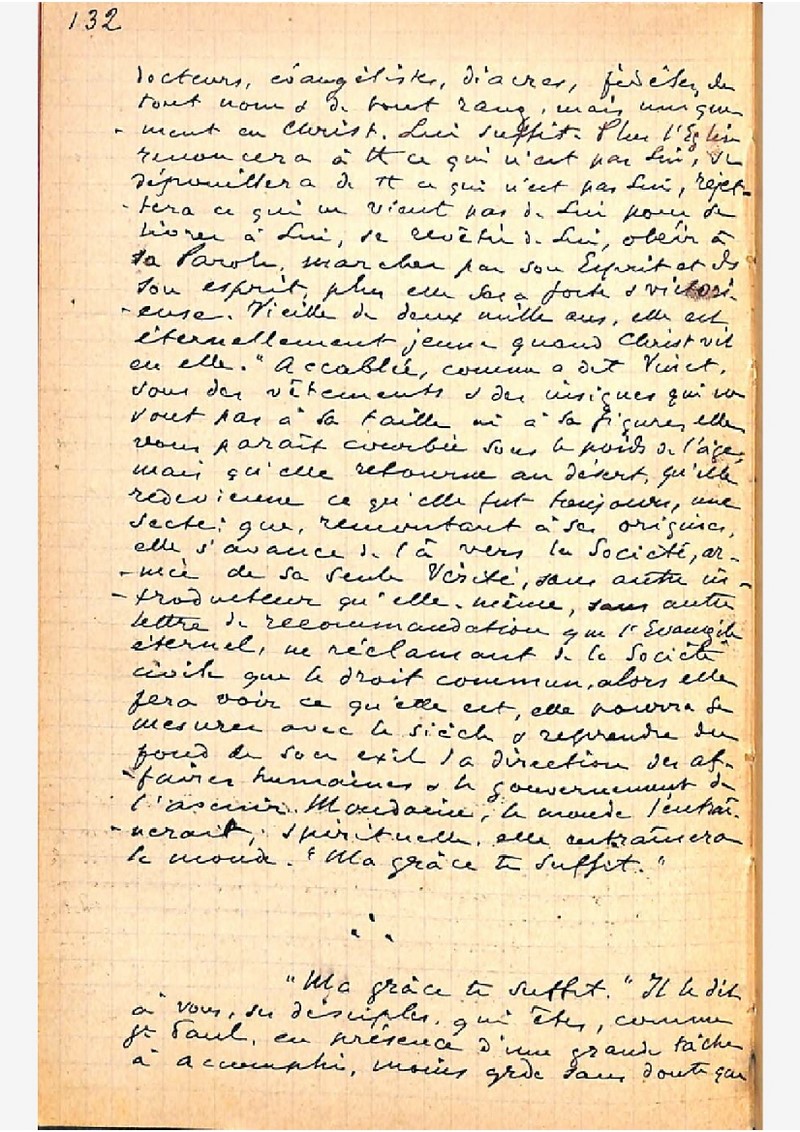 132
docteurs, évangélistes, diacres, fidèles de
tout nom & de tout rang, mais unique
- ment en Christ. Lui suffit. Plus l'Eglise
renoncera à tt ce qui n'est pas Lui, se
dépouillera de tt ce qui n'est pas Lui, rejet-
- tera ce qui ne vient pas de Lui pour se
livrer à Lui, se revêtir de Lui, obéir à
sa Parole, marcher par son Esprit et ds
son esprit, plus elle sera forte & victori-
- euse. Vieille de deux mille ans, elle est
éternellement jeune quand Christ vit
en elle. " Accablée, comme a dit Vinet,
sous des vêtements & des insignes qui ne
vont pas à sa taille ni à sa figure, elle
vous paraît courbée sous le poids de l'âge,
mais qu'elle retourne au désert, qu'elle
redevienne ce qu'elle fut toujours, une
secte; que, remontant à ses origines,
elle s'avance de là vers la Société, ar-
- mée de sa seule Vérité, sans autre in-
- troducteur qu'elle-même, sans autre
lettre de recommandation que l'Evangile
éternel, ne réclamant de la Société
civile que le droit commun, alors elle
fera voir ce qu'elle est, elle pourra se
mesurer avec le siècle & reprendre du
fond de son exil la direction des af-
- faires humaines & le gouvernement de
l'avenir. Mondaine, le monde l'entraî-
- nerait; spirituelle, elle entraînera
le monde. "Ma grâce te suffit."
"Ma grâce te suffit." Il le dit
à vous, ses disciples, qui êtes, comme
St Paul, en présence d'une grande tâche
à accomplir, moins grde sans doute que